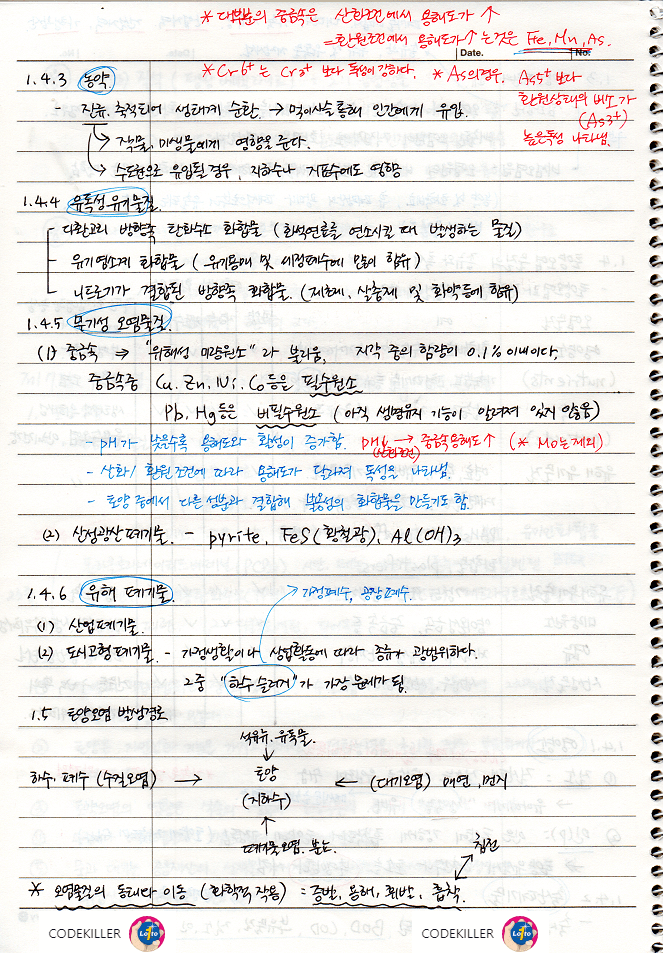 * 대부분의 중금속은 산화조건에서 용해도가 ↑
= 환원조건에서 용해도가 ↑는것은 Fe, Mn, As.
Date. No.
* Cr6+는 Cr3+ 보다 독성이 강하다. * As의경우. As5+ 보다
환원상태의 비소가
(As3+)
높은독성 나타냄.
1.4.3 농약
잔류. 축적되어 생태계 순환. → 먹이사슬통해 인간에게 유입.
→ 작물, 미생물에게 영향을 준다.
→ 수도원으로 유입될 경우, 지하수나 지표수에도 영향
1.4.4 유독성유기물질.
- 다환고리 방향족 탄화수소 화합물 (화석연료를 연소시킬 때 발생하는 물질)
- 유기염소계 화합물 (유기용매 및 세정폐수에 많이 함유)
- 니트로기가 결합된 방향족 화합물. (제초제, 살충제 및 화약등에 함유)
1.4.5 무기성 오염물질.
(1) 중금속 → "위해성 미량원소"라 불리움, 지각 중의 함량이 0.1%이내이다,
중금속중 Cu, Zn, Ni, Co등은 필수원소
Pb, Hg 등은 비필수원소 (아직 생명유지 기능이 알려져 있지 않음)
- pH가 낮을수록 용해도와 활성이 증가함. pH↓ → 중금속용해도↑ (* Mo는제외)
(산화조건)
- 산화/환원조건에 따라 용해도가 달라져 독성을 나타냄.
- 토양 중에서 다른성분과 결합해 불용성의 화합물을 만들기도 함.
(2) 산성광산폐기물. - pyrite, FeS(황철광), Al(OH)3
1.4.6 위해 폐기물. → 가정폐수, 공장폐수.
(1) 산업폐기물.
(2) 도시고형폐기물. - 가정생활이나 상업활동에 따라 종류가 광범위하다.
그중 "하수슬러지"가 가장 문제가 됨.
1.5 토양오염 발생경로
석유류. 유독물.
↓
하수, 폐수 (수질오염) → 토양 ← (대기오염) 매연, 먼지
(지하수)
↑
폐기물오염. 분뇨. 침전
* 오염물질의 동태와 이동 (화학적 작용) = 증발, 용해, 휘발, 흡착.
CODEKILLER Lotto CODEKILLER Lotto